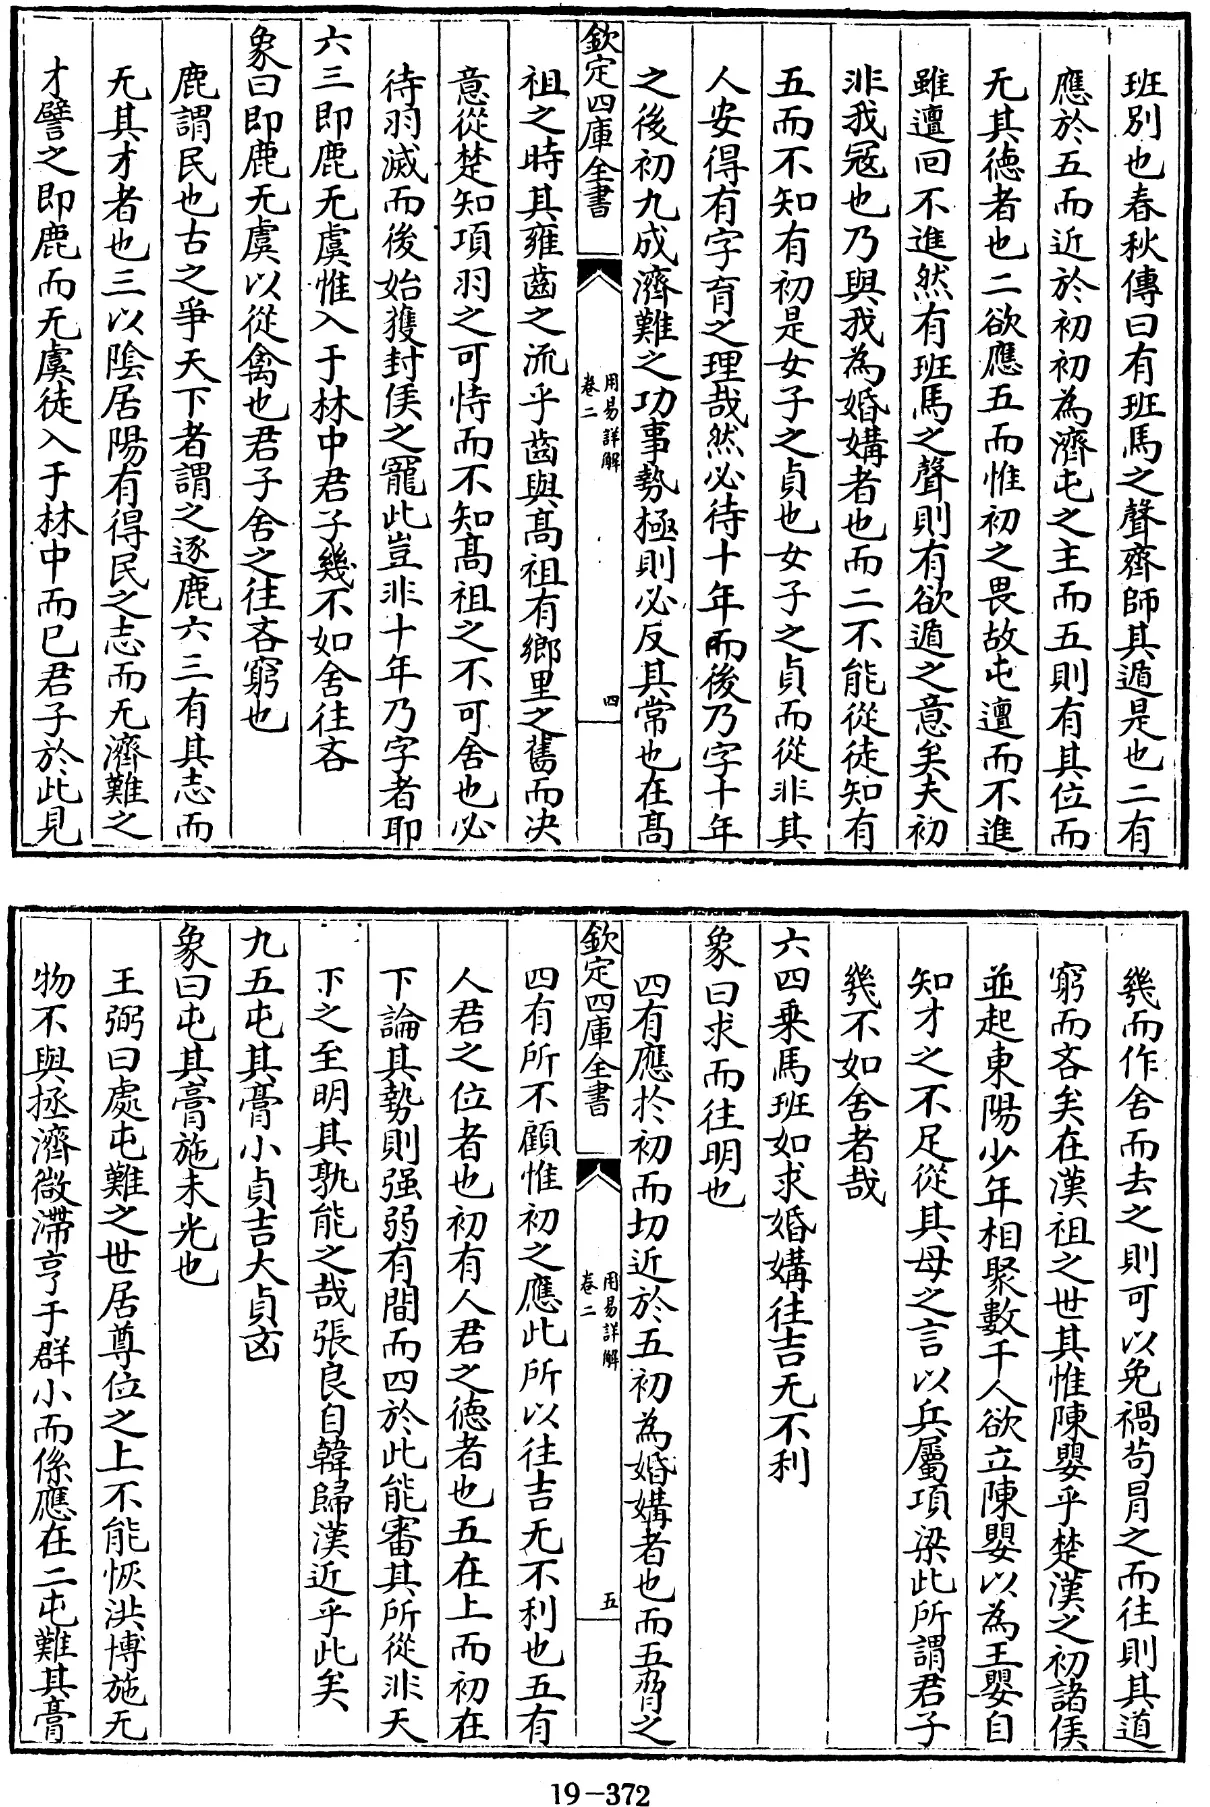 班別也春秋傳曰有班馬之聲齊師其遁是也二有
應於五而近於初初為濟屯之主而五則有其位而
无其德者也二欲應五而惟初之畏故屯邅而不進
雖邅回不進然有班馬之聲則有欲遁之意矣夫初
非我寇也乃與我為婚媾者也而二不能從徒知有
五而不知有初是女子之貞也女子之貞而從非其
人安得有字育之理哉然必待十年而後乃字十年
之後初九成濟難之功事勢極則必反其常也在髙
欽定四庫全書
用易詳解
卷二
四
祖之時其雍齒之流乎齒與髙祖有鄉里之舊而决
意從楚知項羽之可恃而不知髙祖之不可舍也必
待羽滅而後始獲封侯之寵此豈非十年乃字者耶
六三即鹿无虞惟入于林中君子幾不如舍往吝
象曰即鹿无虞以從禽也君子舍之往吝窮也
鹿謂民也古之爭天下者謂之逐鹿六三有其志而
无其才者也三以陰居陽有得民之志而无濟難之
才譬之即鹿而无虞徒入于林中而已君子於此見
幾而作舍而去之則可以免禍苟冐之而往則其道
窮而吝矣在漢祖之世其惟陳嬰乎楚漢之初諸侯
並起東陽少年相聚數千人欲立陳嬰以為王嬰自
知才之不足從其母之言以兵屬項梁此所謂君子
幾不如舍者哉
六四乗馬班如求婚媾往吉无不利
象曰求而往明也
四有應於初而切近於五初為婚媾者也而五膏之
欽定四庫全書
用易詳解
卷二
五
四有所不顧惟初之應此所以往吉无不利也五有
人君之位者也初有人君之德者也五在上而初在
下論其勢則强弱有間而四於此能審其所從非天
下之至明其孰能之哉張良自韓歸漢近乎此矣
九五屯其膏小貞吉大貞凶
象曰屯其膏施未光也
王弼曰處屯難之世居尊位之上不能恢洪博施无
物不與拯濟微滯亨于群小而係應在二屯難其膏
19-372